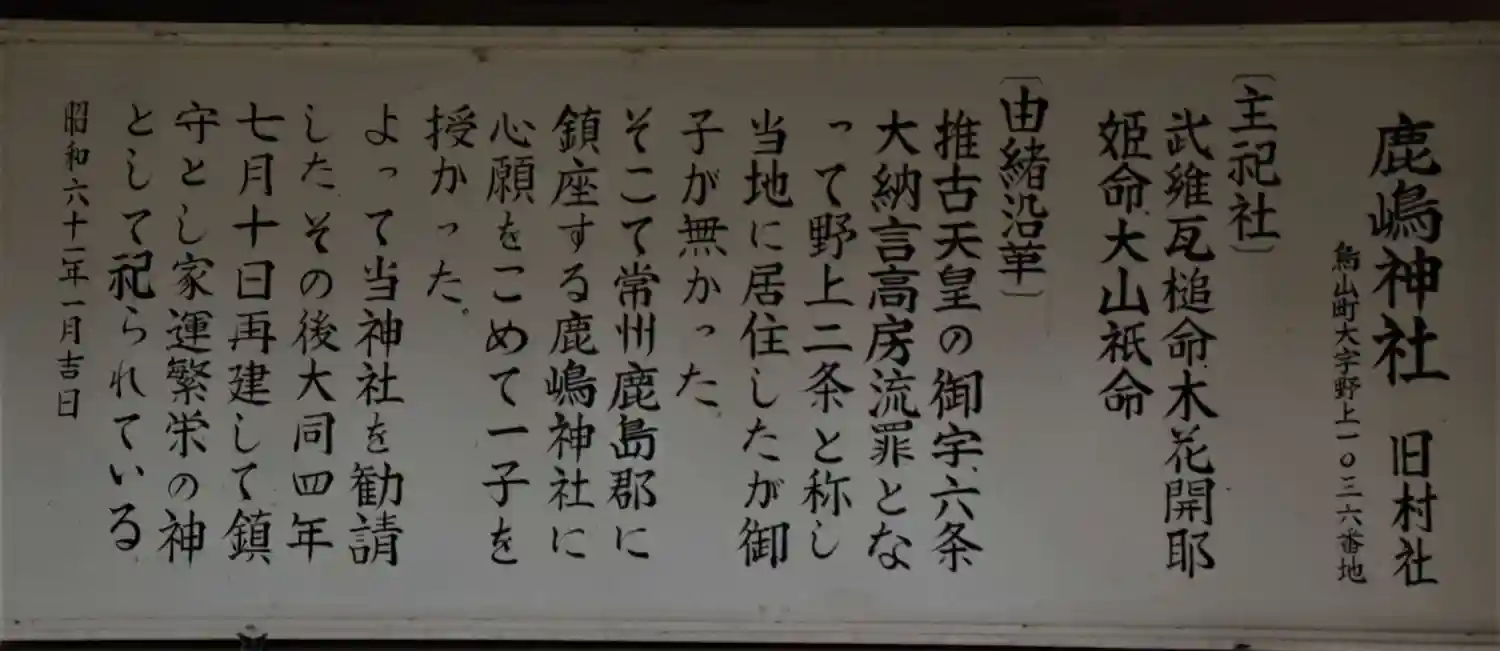 鹿嶋神社 旧村社
烏山町大字野上一〇三六番地
〔主祀社〕
武雍瓦槌命木花開耶
姫命大山祇命
〔由緒沿革〕
推古天皇の御宇、六条
大納言高房流罪とな
って野上二条と称し
当地に居住したが御
子が無かった。
そこで常州鹿島郡に
鎮座する鹿嶋神社に
心願をこめて一子を
授かった。
よって当神社を勧請
した。その後大同四年
七月十日再建して鎮
守とし家運繁栄の神
として祀られている
昭和六十二年一月吉日